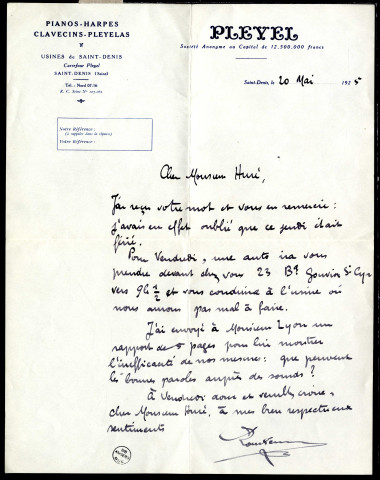 PIANOS-HARPES
CLAVECINS-PLEYELAS
USINES de SAINT-DENIS
Carrefour Pleyel
SAINT-DENIS (Seine)
Tél. : Nord 07-26
R. C. Seine Nº
PLEYEL
Société Anonyme au Capital de 12.500.000 francs
Saint-Denis, le 20 Mai 1925
Notre Référence :
(à rappeler dans la réponse)
Votre Référence :
Cher Monsieur Huré,
J'ai reçu votre mot et vous en remercie :
j'avais en effet oublié que ce jeudi était
férié.
Pour Vendredi, une auto ira vous
prendre devant chez vous 23 Bd Gouvion St Cyr
vers 9h 1/2 et vous conduira à l'usine où
nous aurons pas mal à faire.
J'ai envoyé à Monsieur Lyon un
rapport de 8 pages pour lui montrer
l'inefficacité de nos mesures : que peuvent
les bonnes paroles auprès des sourds ?
À Vendredi donc et veuillez croire,
cher Monsieur Huré, à mes bien respectueux
sentiments